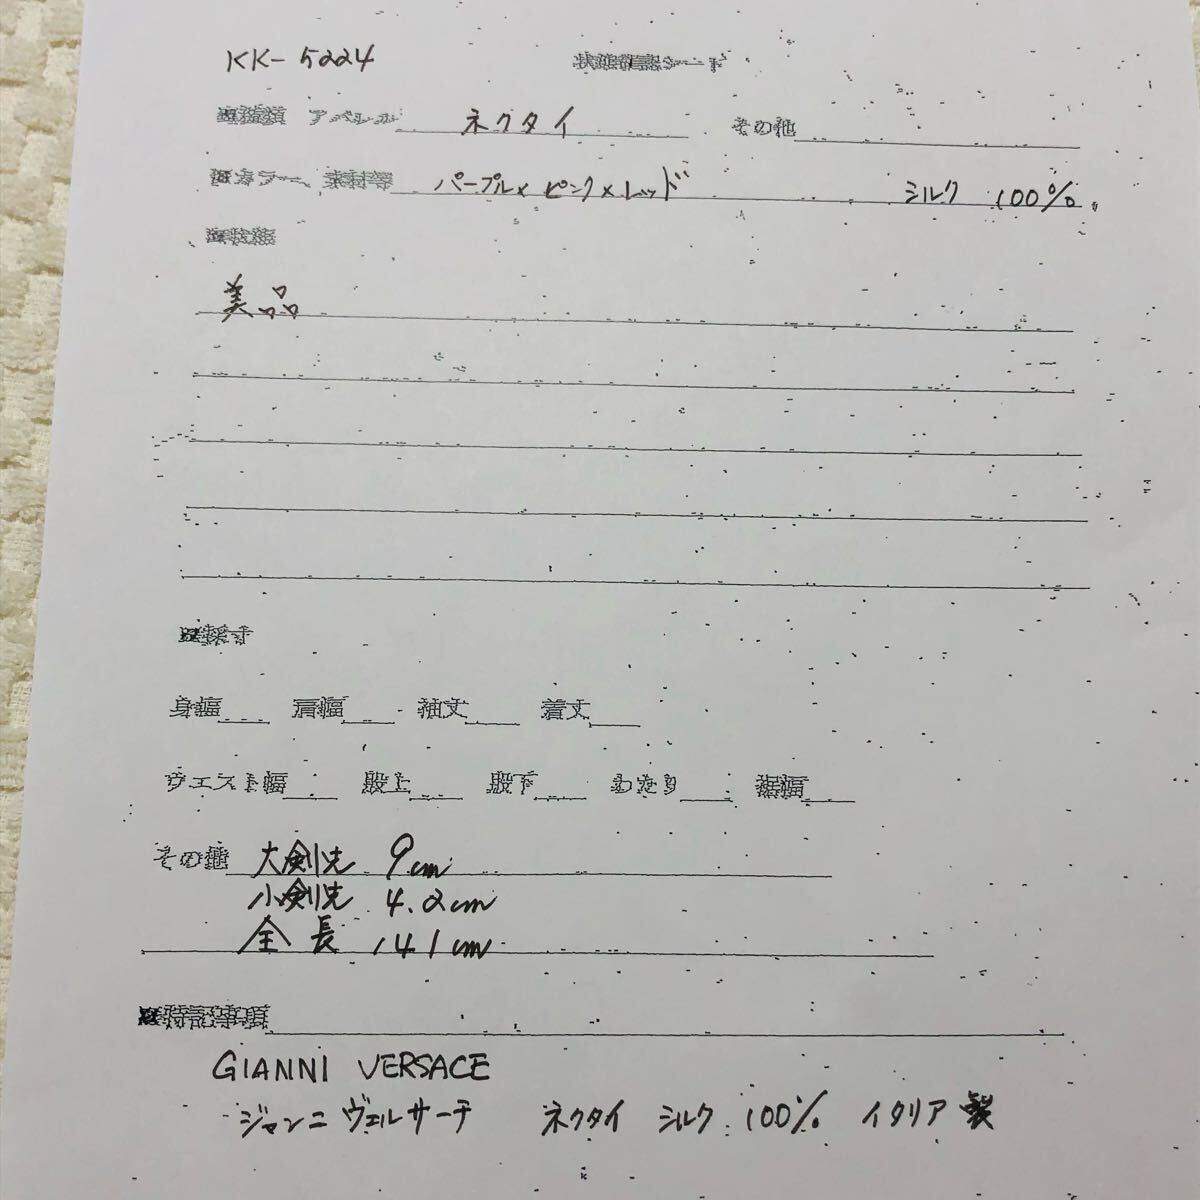 KK-5224 状態確認シート
種類 アパレル ネクタイ その他
カラー、素材等 パープル×ピンク×レッド シルク 100%
状態
美品
採寸
身幅 肩幅 袖丈 着丈
ウエスト幅 股上 股下 わたり 裾幅
その他 大剣先 9cm
小剣先 4.2cm
全長 141cm
特記事項
GIANNI VERSACE
ジャンニ ヴェルサーチ ネクタイ シルク 100% イタリア製